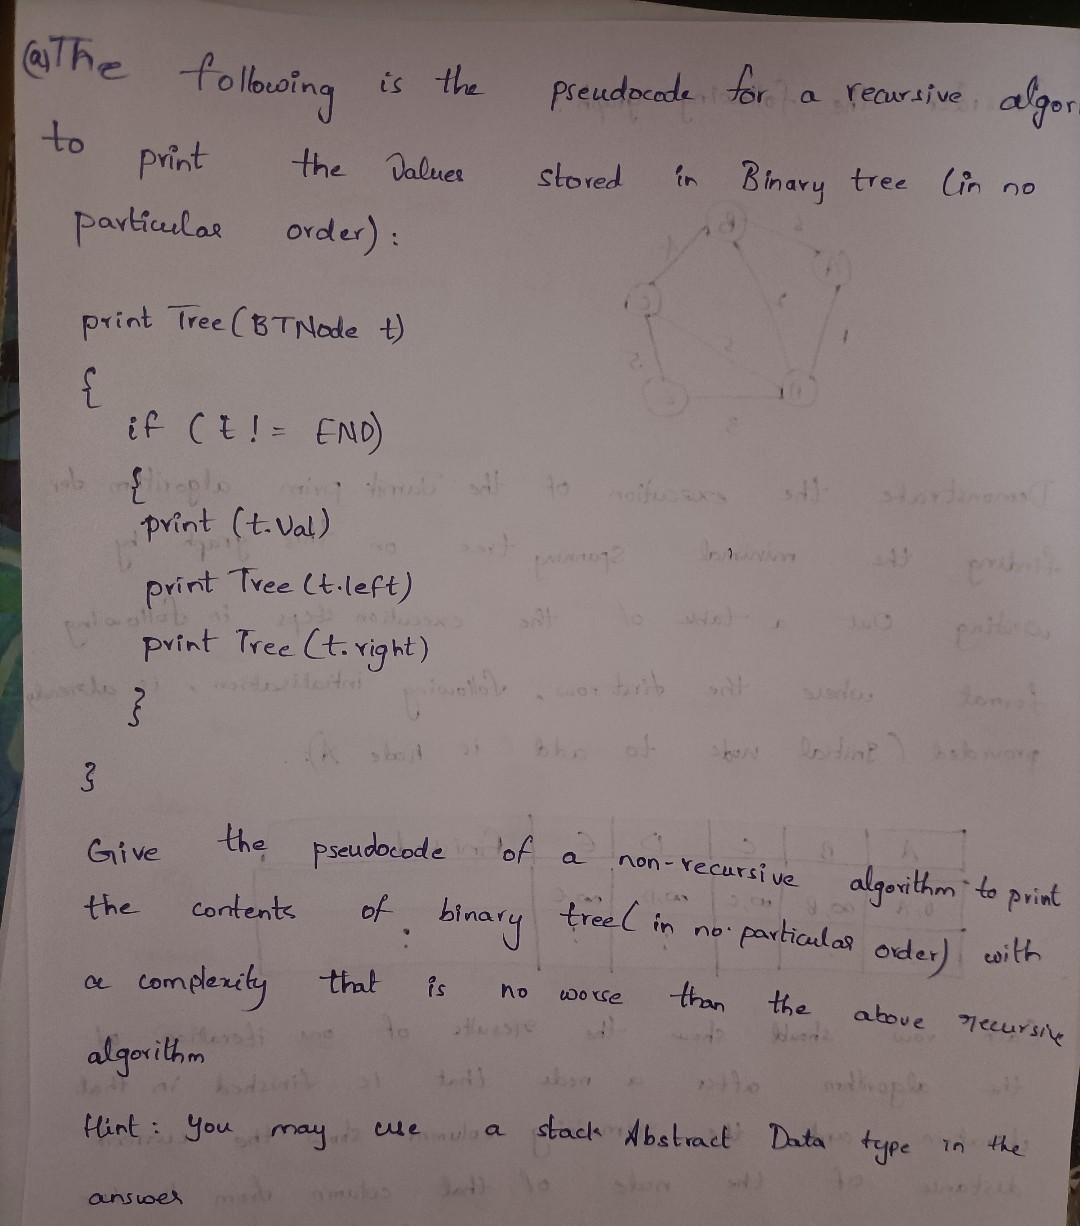 (a) The following is the pseudocode for a recursive algor
to print the Values stored in Binary tree (in no
particular order):
print Tree (BTNode t)
{
if (t != END)
{
print (t.Val)
print Tree (t.left)
print Tree (t.right)
}
}
Give the pseudocode of a non-recursive algorithm to print
the contents of binary tree( in no. particular order) with
a complexity that is no worse than the above recursive
algorithm
Hint: You may use a stack Abstract Data type in the
answer